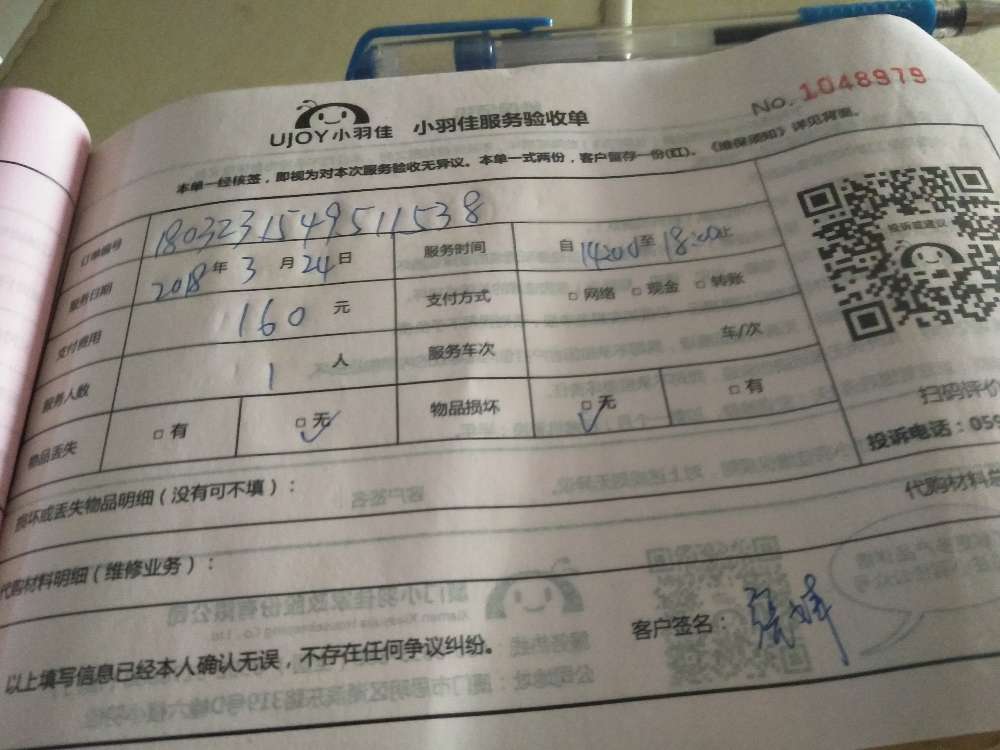 UJOY小羽佳 小羽佳服务验收单
No. 1048979
本单一经核签，即视为对本次服务验收无异议。本单一式两份，客户留存一份(红)。《维保须知》详见背面。
订单编号 1803231549511538
服务日期 2018年3月24日 服务时间 自14:00至18:00止
支付费用 160元 支付方式 □网络 □现金 □转账
服务人数 1人 服务车次 车/次
物品丢失 □有 □无 物品损坏 □无 □有
投诉或建议
扫码评价
投诉电话：059
损坏或丢失物品明细（没有可不填）：
代购材料明细（维修业务）：
代购材料
以上填写信息已经本人确认无误，不存在任何争议纠纷。
客户签名：